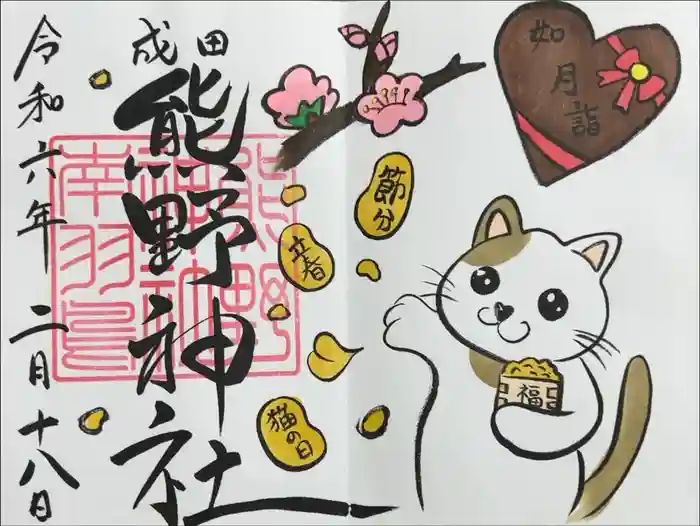 如月詣
節分
立春
福
猫の日
成田
熊野神社
令和六年二月十八日